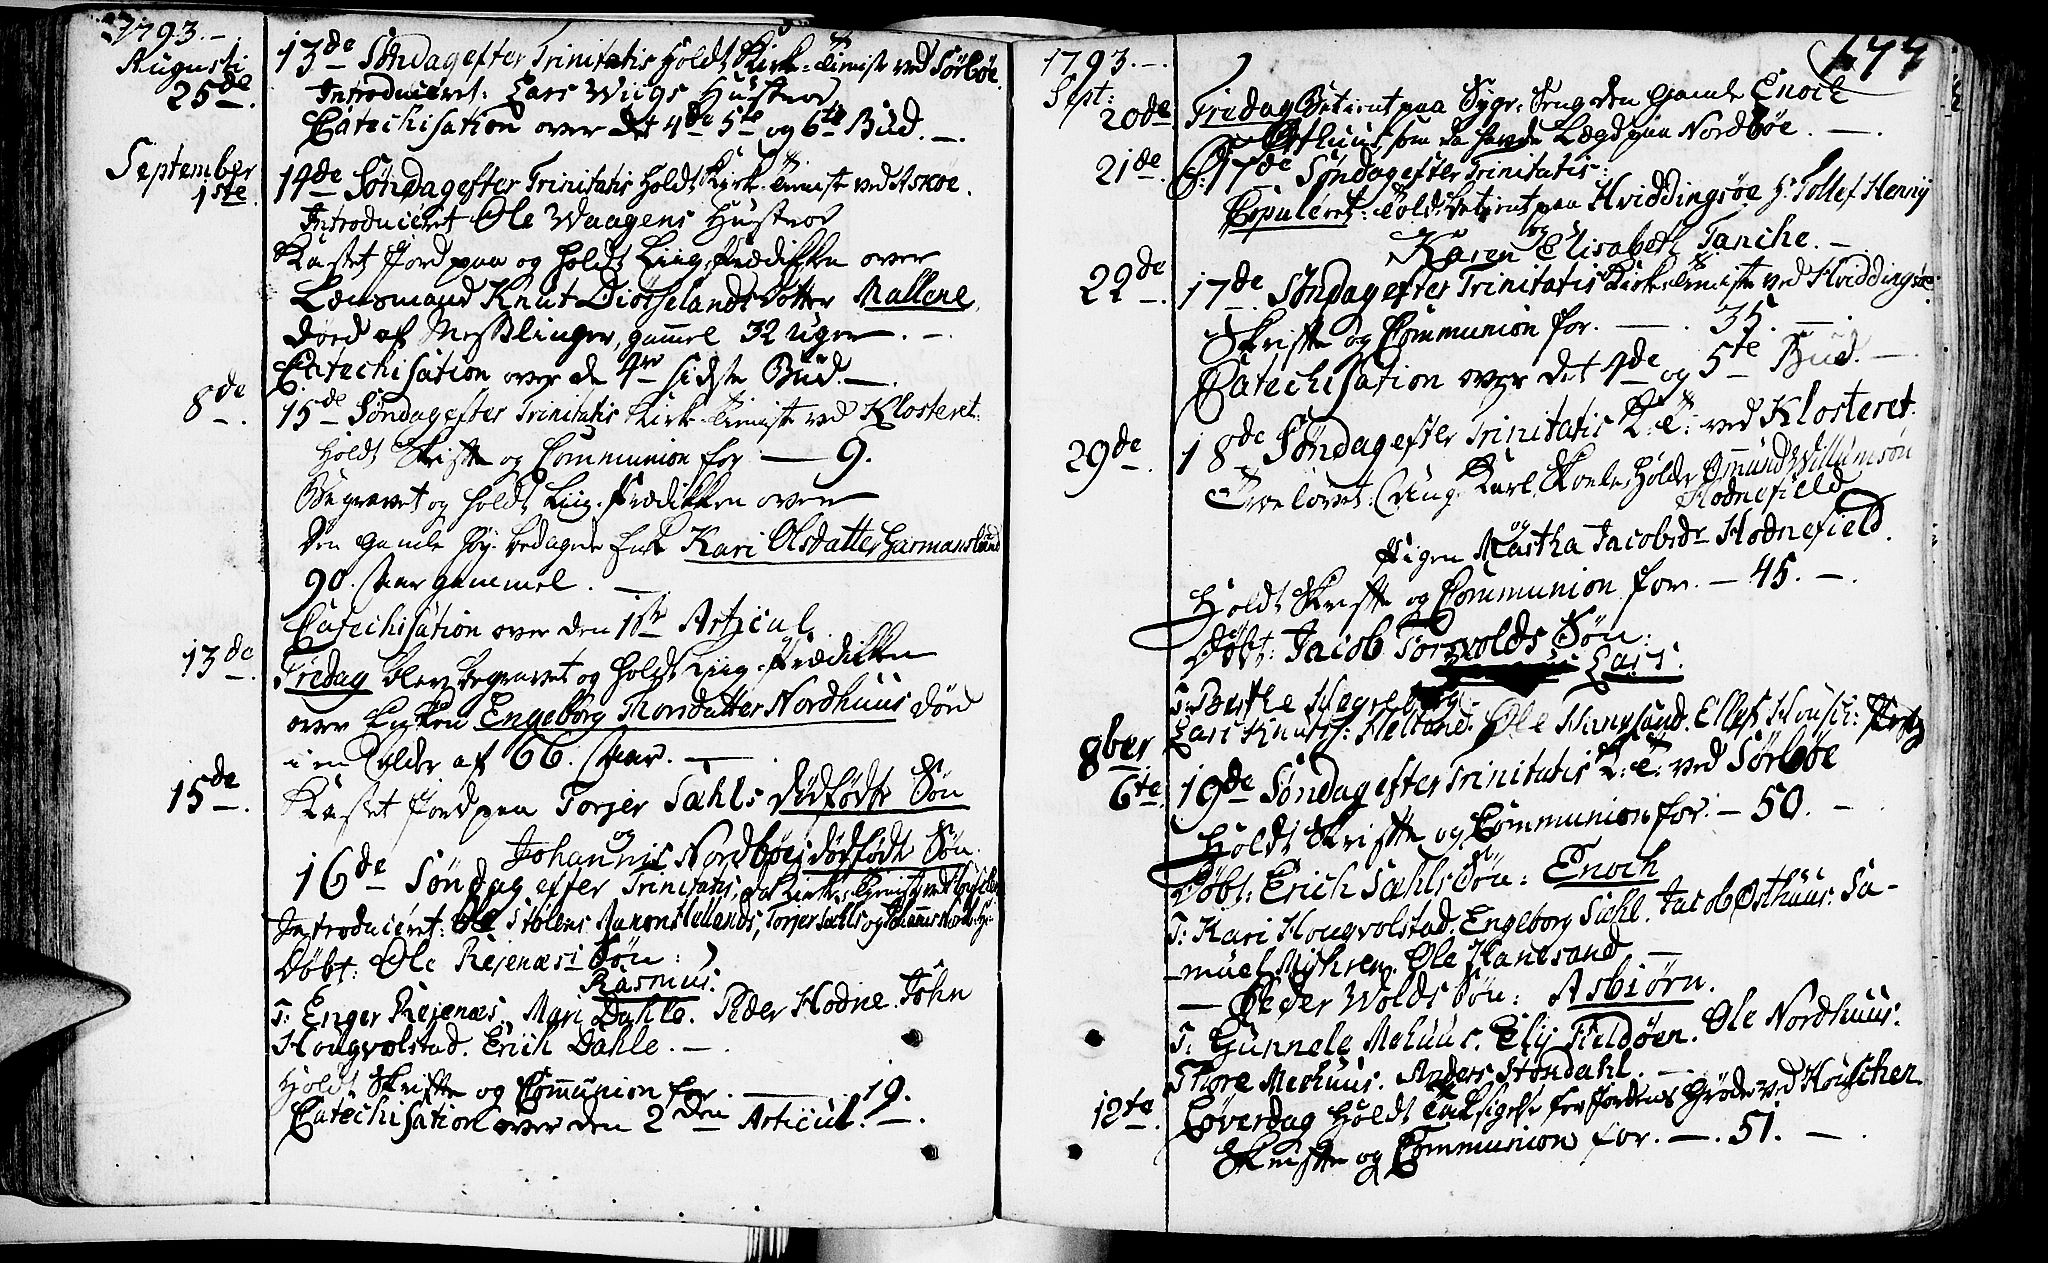 1793.-.
Augusti
25de.
13de Søndag efter Trinitatis Holdt Kirke-Tieniste ved Sørbøe.
Introduceret: Lars Wiigs Hustroe
Catechisation over det 4de 5te og 6te Bud. -.
September
1ste.
14de Søndag efter Trinitatis holdt Kirk-Tieniste ved Askøe.
Introduceret Ole Waagens Hustroe
Kastet Jord paa og holdt Liig-Prædikken over
Lensmand Knut Diørselands Dotter Mallene,
Døed af Messlinger, gammel 32 Uger. -.
Catechisation over de 4re sidste Bud. -.
8de
15de Søndag efter Trinitatis Kirk-Tieniste ved Klosteret.
Holdt Skrifte og Communion for - 9.
Begravet og holdt Liig-Prædikken over
den gamle høy-bedagede Enke Kari Olsdatter Garmanslund
90. Aar gammel. -
Catechisation over den 1ste Articul.
13de.
Fredag blev begravet og holdt Liig-Prædikken
over Enken Engeborg Thorsdatter Nordhuus død
i en Alder af 66. Aar. -
15de.
Kastet Jord paa Torjer Sahls dødfødte Søn
og
Johannis Nordbøes dødfødte Søn.
16de Søndag efter Trinitatis, da Kirke-Tieniste ved
Introduceret: Ole Stølens Hellands, Torjer Sahls og Johannis Nordbøes
Døbt: Ole Reienæsi Søn:
Rasmus.
T: Enger Reienæs. Mari Dahle. Peder Hodne. John
Hougvolstad. Erich Dahle. -.
Holdt Skrifte og Communion for - 19.
Catechisation over den 2den Articul. -.
1793. -.
177
Sept:
20de
Fredag Betient paa Syge-Seng den Gamle Enoch
som da havde Lægd paa Nordbøe. -.
21de.
17de Søndag efter Trinitatis:
Copuleret: Told-Betient paa Hviddingsøe Hr. Tollef Henry
og
Karen Elisabeth Tanche. -
22de
17de Søndag efter Trinitatis Kirke-Tieniste ved Hviddingsøe
Skrifte og Communion for. - . 35. -.
Catechisation over det 4de og 5te Bud. -
29de.
18de Søndag efter Trinitatis K: T: ved Klosteret.
Trolovet: Ung-Karl, Skoele-Holder Osmund Villumsøn
Hodnefield
og
Pigen Martha Jacobsdr Hodnefield.
Holdt Skrifte og Communion for. - 45. -.
Døbt: Jacob Torvolds Søn:
Lars.
T: Berthe Hegreberg.
Lars Knuts: Helland. Ole Hanesand. Ellef
8ber
6te.
19de Søndag efter Trinitatis K: T: ved Sørbøe
Holdt Skrifte og Communion for. - 50. -
Døbt: Erich Sahls Søn: Enoch
T: Kari Hougvolstad. Engeborg Sahl. Jacob Østhuus. Sa-
muel Myhren. Ole Hanesand -
- Peder Wolds Søn: Asbiørn.
T: Gunnele Mehuus. Elij Fieldøen. Ole Nordhuus.
Thore Mechuus. Anders Støndahl. -
12te.
Løverdag Holdt Taksigelse for Jordens Grøde ved Houschen
Skrifte og Communion for. - . 51. -.